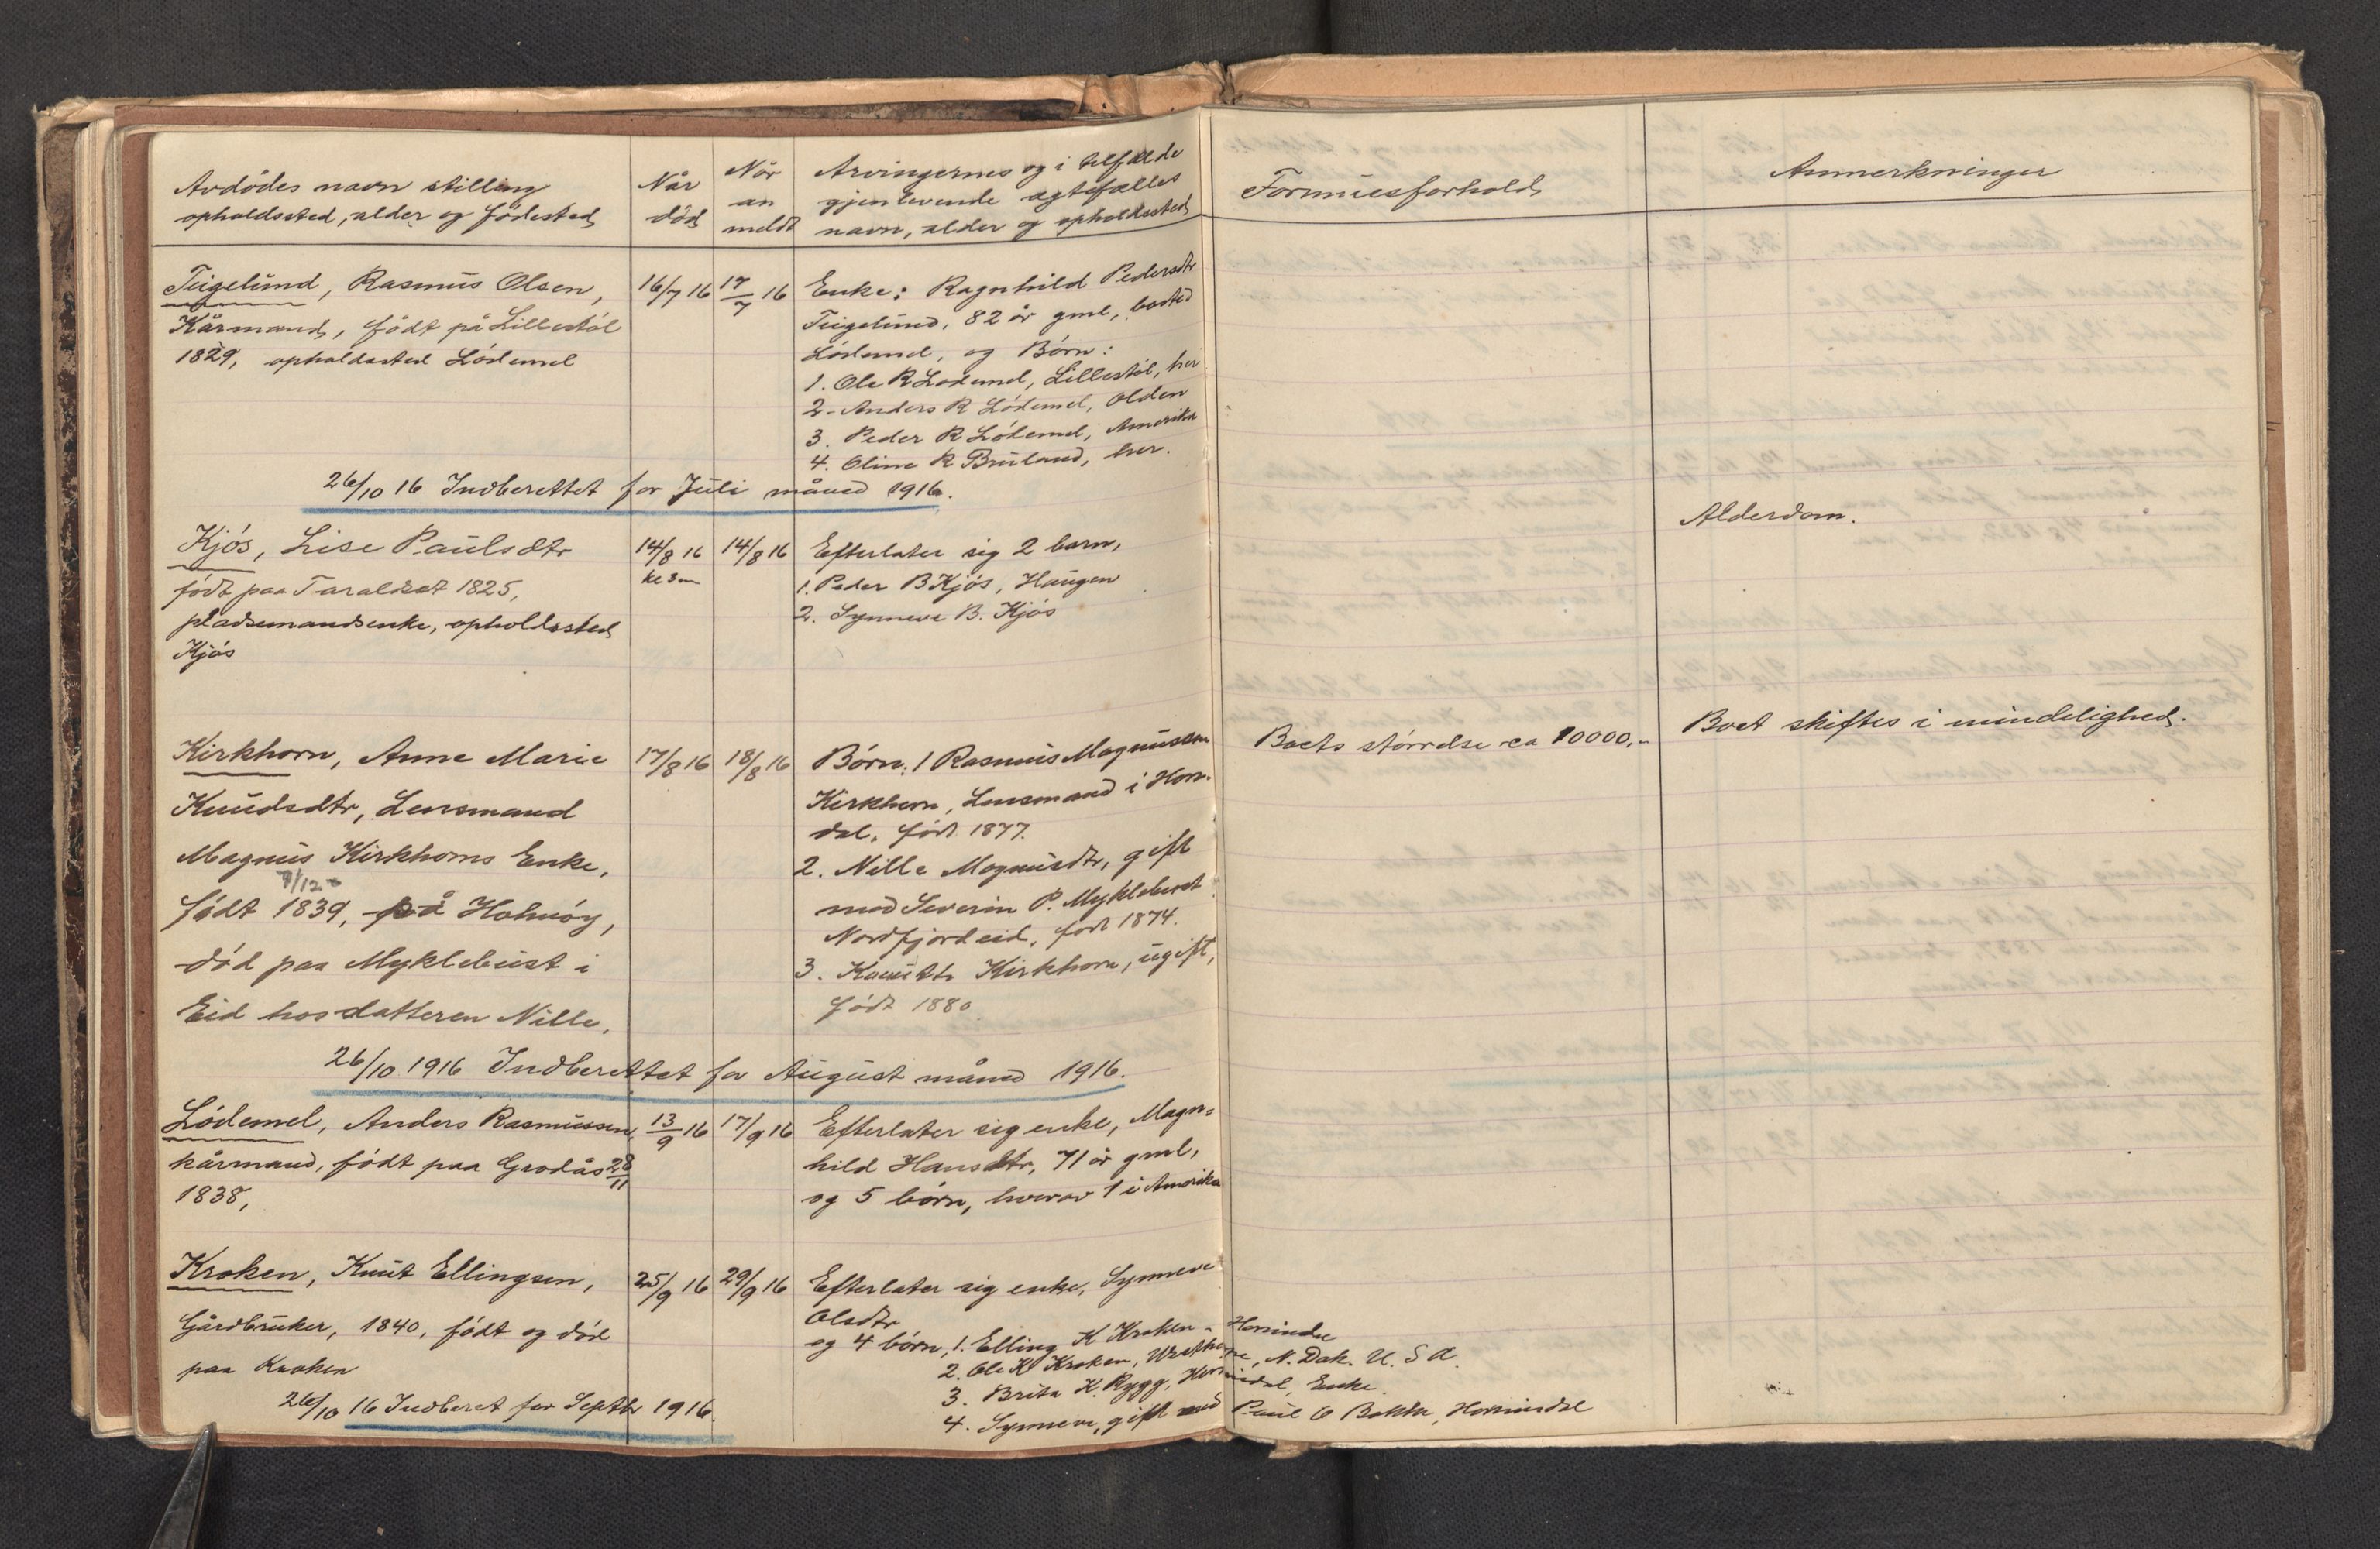 Avdödes navn stilling
opholdssted, alder og födested
Når
död
Når
an
meldt
Arvingernes og i tilfælde
gjenlevende ægtefælles
navn, alder og opholdssted
Formuesforhold
Anmerkninger
Teigelund, Rasmus Olsen,
Kårmand, födt på Lillestöl
1829, opholdssted Lödemel
16/7 16
17/7 16
Enke: Ragnhild Pedersdtr
Teigelund, 82 år gml, bosted
Lödemel, og Börn:
1. Ole R Lödemel, Lillestöl, her
2. Anders R Lödemel, Olden
3. Peder R Lödemel, Amerika
4. Oline R Bruland, her.
26/10 16 Indberettet for Juli måned 1916.
Kjös, Lise Paulsdtr
födt paa Taraldset 1825,
pladsemandsenke, opholdssted
Kjös
14/8 16
kl 3 m
14/8 16
Efterlater sig 2 barn,
1. Peder B Kjös, Haugen
2. Synneve B. Kjös
Alderdom.
Kirkhorn, Anne Marie
Knudsdtr, Lensmand
Magnus Kirkhorns Enke,
7/12
födt 1839, på Holmöy,
död paa Myklebust i
Eid hos datteren Nille.
17/8 16
18/8 16
Börn: 1 Rasmus Magnussen
Kirkhorn, Lensmand i Horn-
dal, född 1877.
2. Nille Magnusdtr, gift
med Severin P. Myklebust
Nordfjordeid, född 1874.
3. Knut Kirkhorn, ugift,
född 1880
Boets störrelse ca 10000,-
Boet skiftes i mindelighed.
26/10 1916 Indberettet for August måned 1916.
Lödemel, Anders Rasmussen,
kårmand, födt paa Grodås 28/11
1838,
13/9 16
17/9 16
Efterlater sig enke, Magn=
hild Hansdtr, 71 år gml,
og 5 börn, hvorav 1 i Amerika
Kroken, Knut Ellingsen,
Gårdbruker, 1840, födt og död
paa Kroken
25/9 16
29/9 16
Efterlater sig enke, Synneve
Olsdtr
og 4 börn, 1. Elling K Kroken - Hornindal
2. Ole K Kroken, N. Dak. U. S A.
3. Brita K. Rygg, Hornindal, Enke.
4. Synneve, gift med Paul O Bakke, Hornindal
26/10 16 Indberet for Septbr 1916.